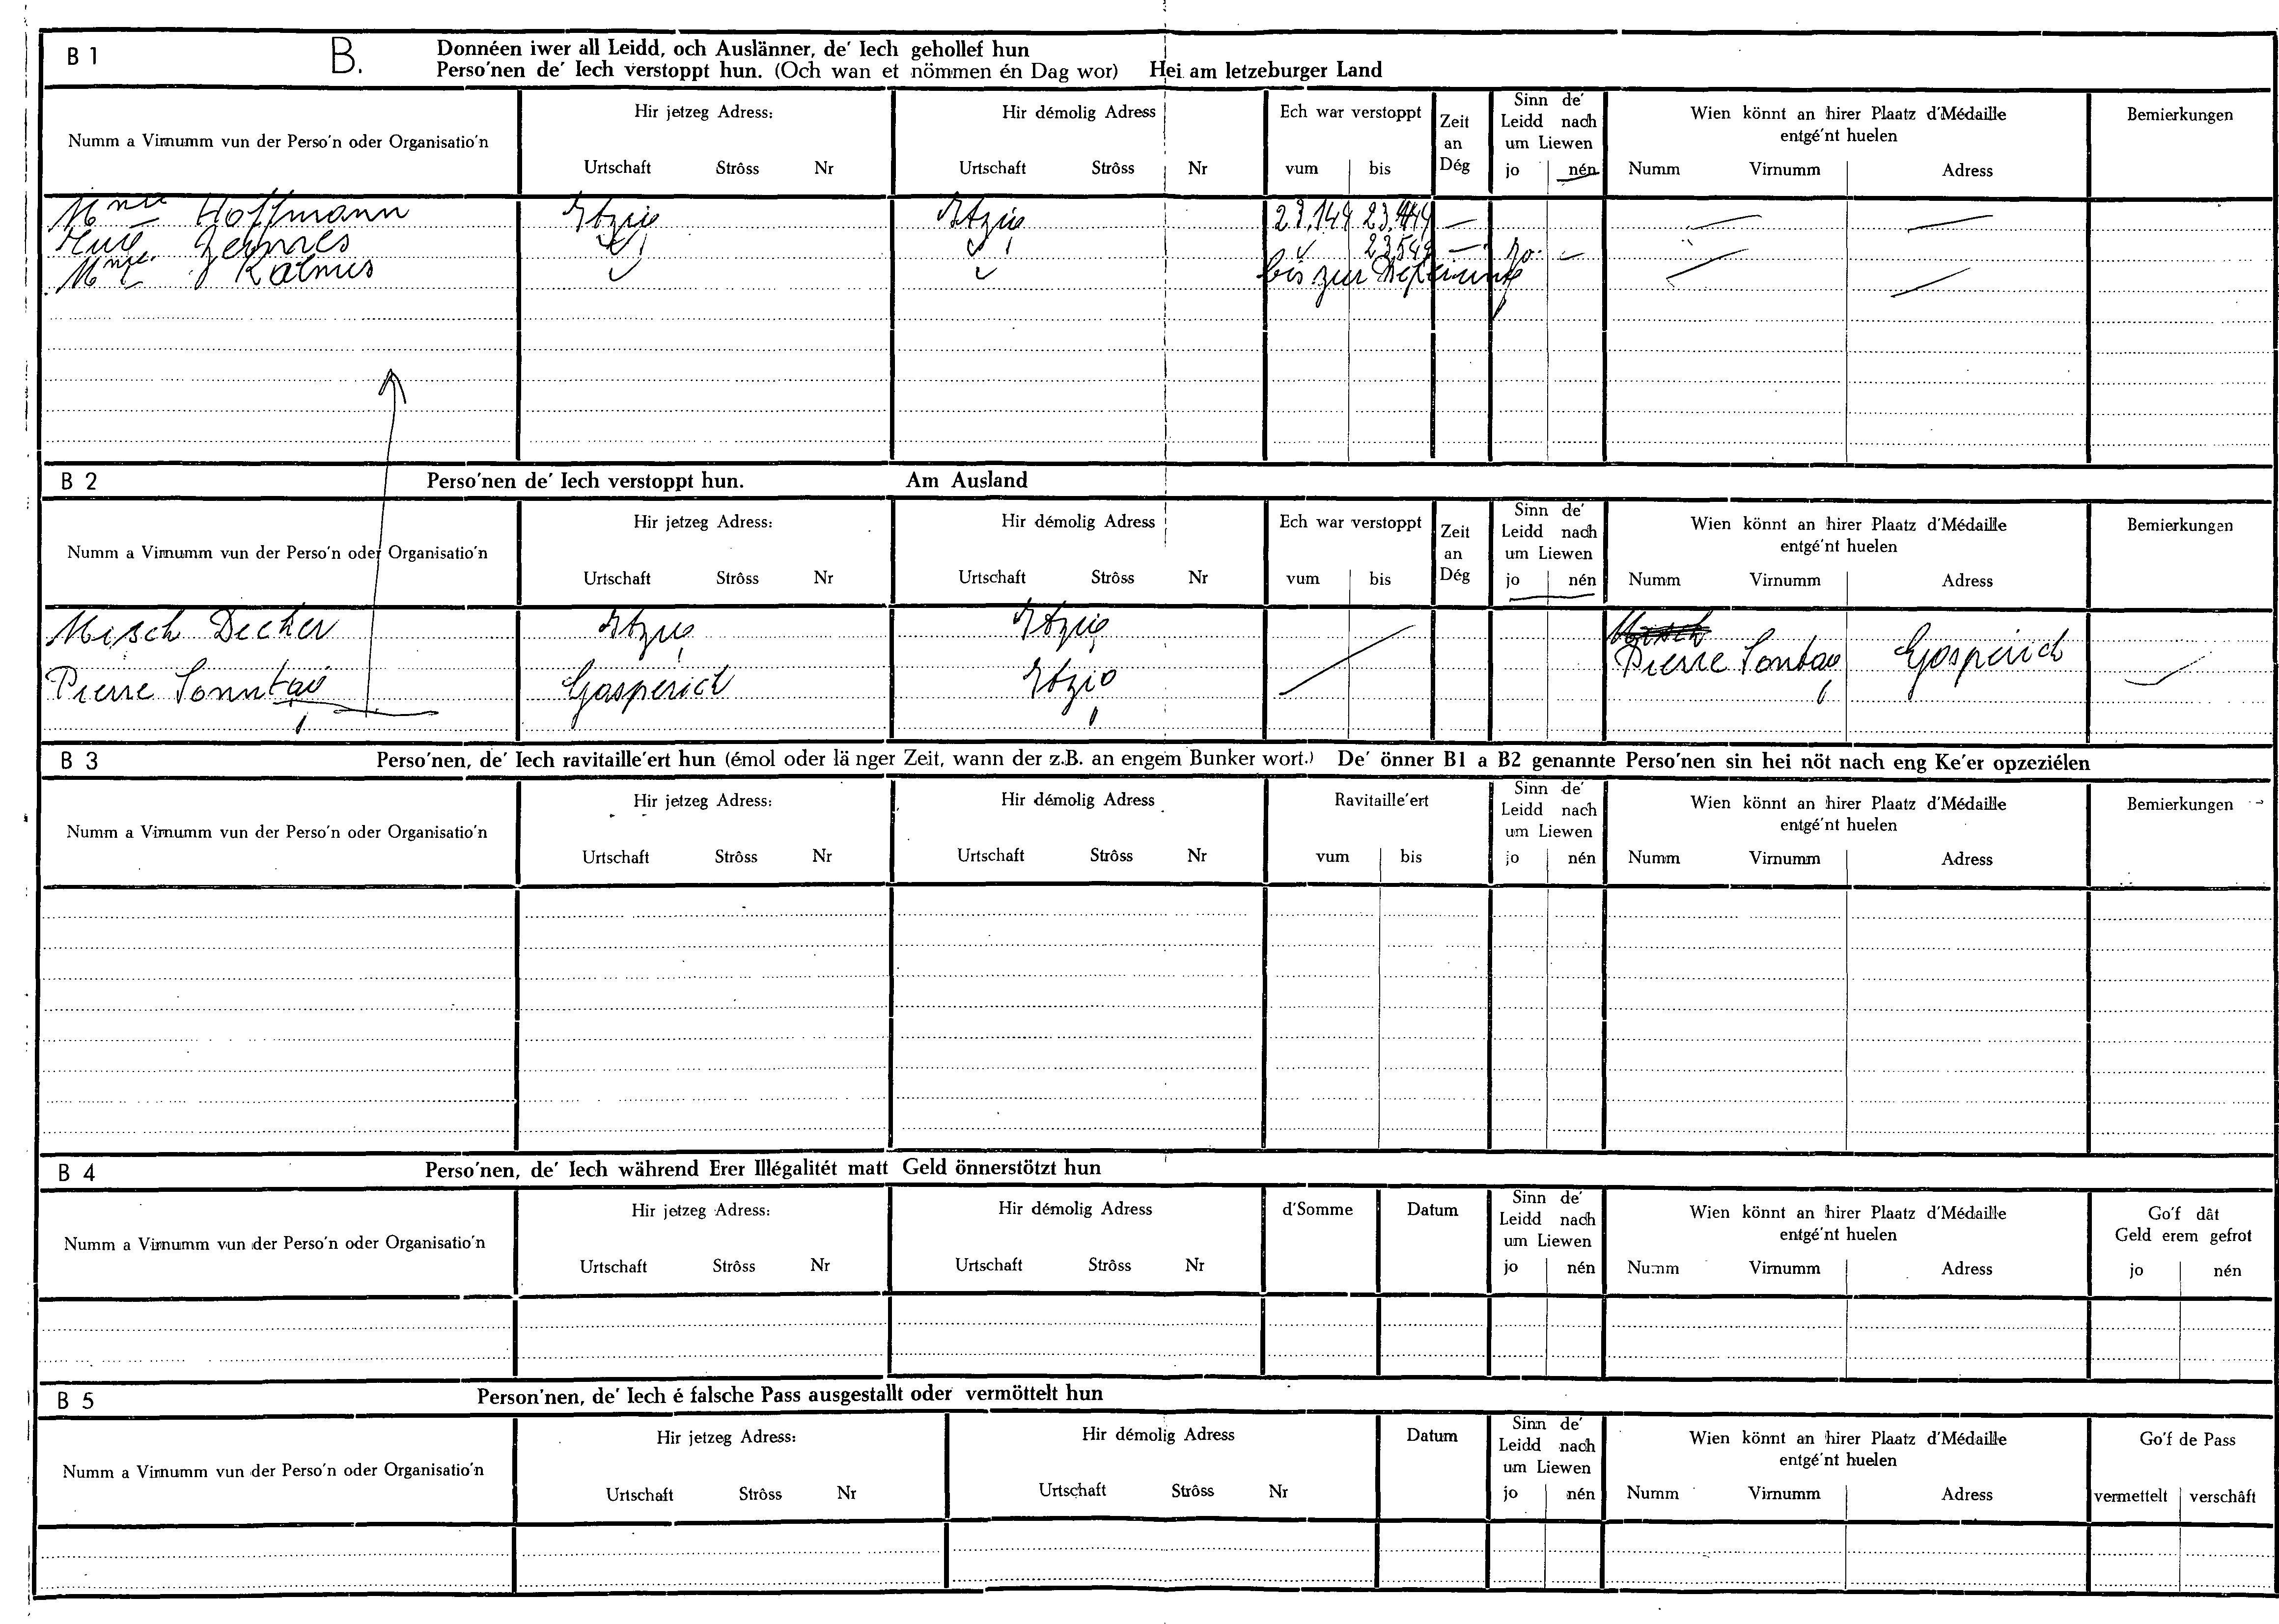 B 1 B. Donnéen iwer all Leidd, och Auslänner, de' Iech gehollef hun
Perso'nen de' Iech verstoppt hun. (Och wan et nömmen én Dag wor) Hei am letzeburger Land
Numm a Virnumm vun der Perso'n oder Organisatio'n
Hir jetzeg Adress:
Urtschaft Strôss Nr
Hir démolig Adress
Urtschaft Strôss Nr
Ech war verstoppt
vum bis
Zeit
an
Dég
Sinn de'
Leidd nach
um Liewen
jo nén
Wien könnt an hirer Plaatz d'Médaille
entgé'nt huelen
Numm Virnumm Adress
Bemierkungen
Hoffmann Itzig Itzig
Kalmes bis zur
B 2 Perso'nen de' Iech verstoppt hun. Am Ausland
Numm a Virnumm vun der Perso'n oder Organisatio'n
Hir jetzeg Adress:
Urtschaft Strôss Nr
Hir démolig Adress
Urtschaft Strôss Nr
Ech war verstoppt
vum bis
Zeit
an
Dég
Sinn de'
Leidd nach
um Liewen
jo nén
Wien könnt an hirer Plaatz d'Médaille
entgé'nt huelen
Numm Virnumm Adress
Bemierkungen
Misch Decker Itzig Itzig
Pierre Sonntag Gasperich Itzig Pierre Sontag Gasperich
B 3 Perso'nen, de' Iech ravitaille'ert hun (émol oder lä nger Zeit, wann der z.B. an engem Bunker wort.) De' önner B1 a B2 genannte Perso'nen sin hei nöt nach eng Ke'er opzeziélen
Numm a Virnumm vun der Perso'n oder Organisatio'n
Hir jetzeg Adress:
Urtschaft Strôss Nr
Hir démolig Adress
Urtschaft Strôss Nr
Ravitaille'ert
vum bis
Sinn de'
Leidd nach
um Liewen
jo nén
Wien könnt an hirer Plaatz d'Médaille
entgé'nt huelen
Numm Virnumm Adress
Bemierkungen
B 4 Perso'nen, de' Iech während Erer Illégalitét matt Geld önnerstötzt hun
Numm a Virnumm vun der Perso'n oder Organisatio'n
Hir jetzeg Adress:
Urtschaft Strôss Nr
Hir démolig Adress
Urtschaft Strôss Nr
d'Somme
Datum
Sinn de'
Leidd nach
um Liewen
jo nén
Wien könnt an hirer Plaatz d'Médaille
entgé'nt huelen
Numm Virnumm Adress
Go'f dât
Geld erem gefrot
jo nén
B 5 Person'nen, de' Iech é falsche Pass ausgestallt oder vermöttelt hun
Numm a Virnumm vun der Perso'n oder Organisatio'n
Hir jetzeg Adress:
Urtschaft Strôss Nr
Hir démolig Adress
Urtschaft Strôss Nr
Datum
Sinn de'
Leidd nach
um Liewen
jo nén
Wien könnt an hirer Plaatz d'Médaille
entgé'nt huelen
Numm Virnumm Adress
Go'f de Pass
vermettelt verschâft